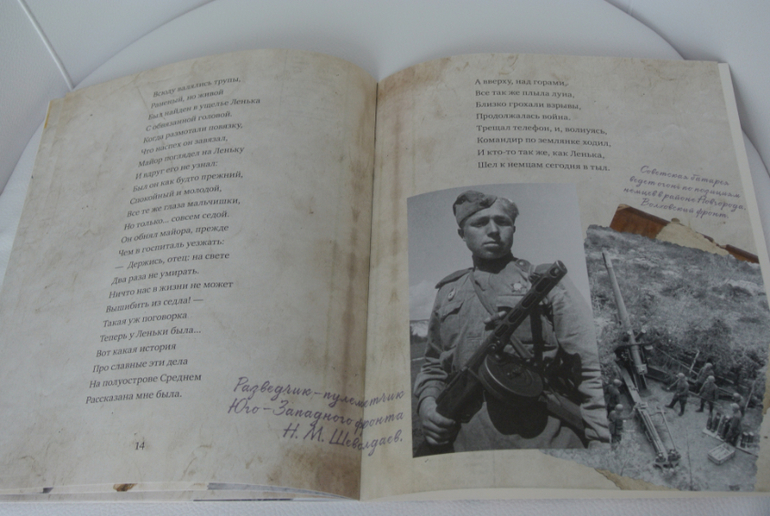 Всюду валялись трупы,
Раненый, но живой
Был найден в ущелье Ленька
С обвязанной головой.
Когда размотали повязку,
Что наспех он завязал,
Майор поглядел на Леньку
И вдруг его не узнал:
Был он как будто прежний,
Спокойный и молодой,
Все те же глаза мальчишки,
Но только... совсем седой.
Он обнял майора, прежде
Чем в госпиталь уезжать:
— Держись, отец: на свете
Два раза не умирать.
Ничто нас в жизни не может
Вышибить из седла! —
Такая уж поговорка
Теперь у Леньки была...
Вот какая история
Про славные эти дела
На полуострове Среднем
Рассказана мне была.
Разведчик-пулеметчик
Юго-Западного фронта
Н. М. Шевалдаев.
14
А вверху, над горами,
Все так же плыла луна,
Близко грохали взрывы,
Продолжалась война.
Трещал телефон, и, волнуясь,
Командир по землянке ходил,
И кто-то так же, как Ленька,
Шел к немцам сегодня в тыл.
Советская батарея
ведет огонь по позициям
немцев в районе Новгорода.
Волховский фронт.